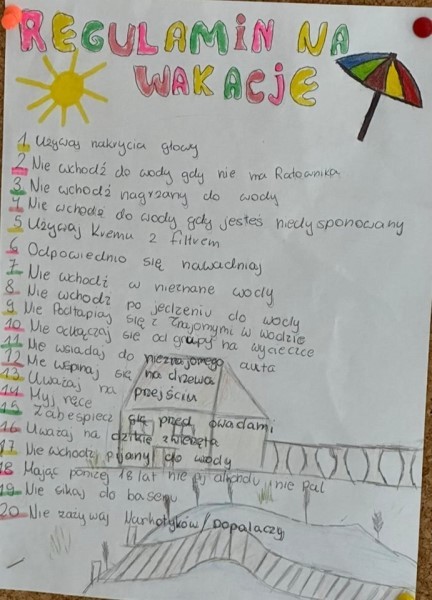 REGULAMIN NA
WAKACJE
1 Używaj nakrycia głowy
2 Nie wchodź do wody gdy nie ma Ratownika
3 Nie wchodź nagrzany do wody
4 Nie wchodź do wody gdy jesteś niedysponowany
5 Używaj Kremu z filtrem
6 Odpowiednio się nawadniaj
7 Nie wchodź w nieznane wody
8 Nie wchodź po jedzeniu do wody
9 Nie Podtapiaj się z znajomymi w wodzie
10 Nie odłączaj się od grupy na wycieczce
11 Nie wsiadaj do nieznajomego auta
12 Nie wspinaj się na drzewa
13 Uważaj na przejściu
14 Myj ręce
15 Zabezpiecz się przed owadami
16 Uważaj na dzikie zwierzęta
17 Nie wchodź pijany do wody
18 Mając poniżej 18 lat nie pij alkoholu i nie pal
19 Nie sikaj do basenu
20 Nie zażywaj Narkotyków/Dopalaczy